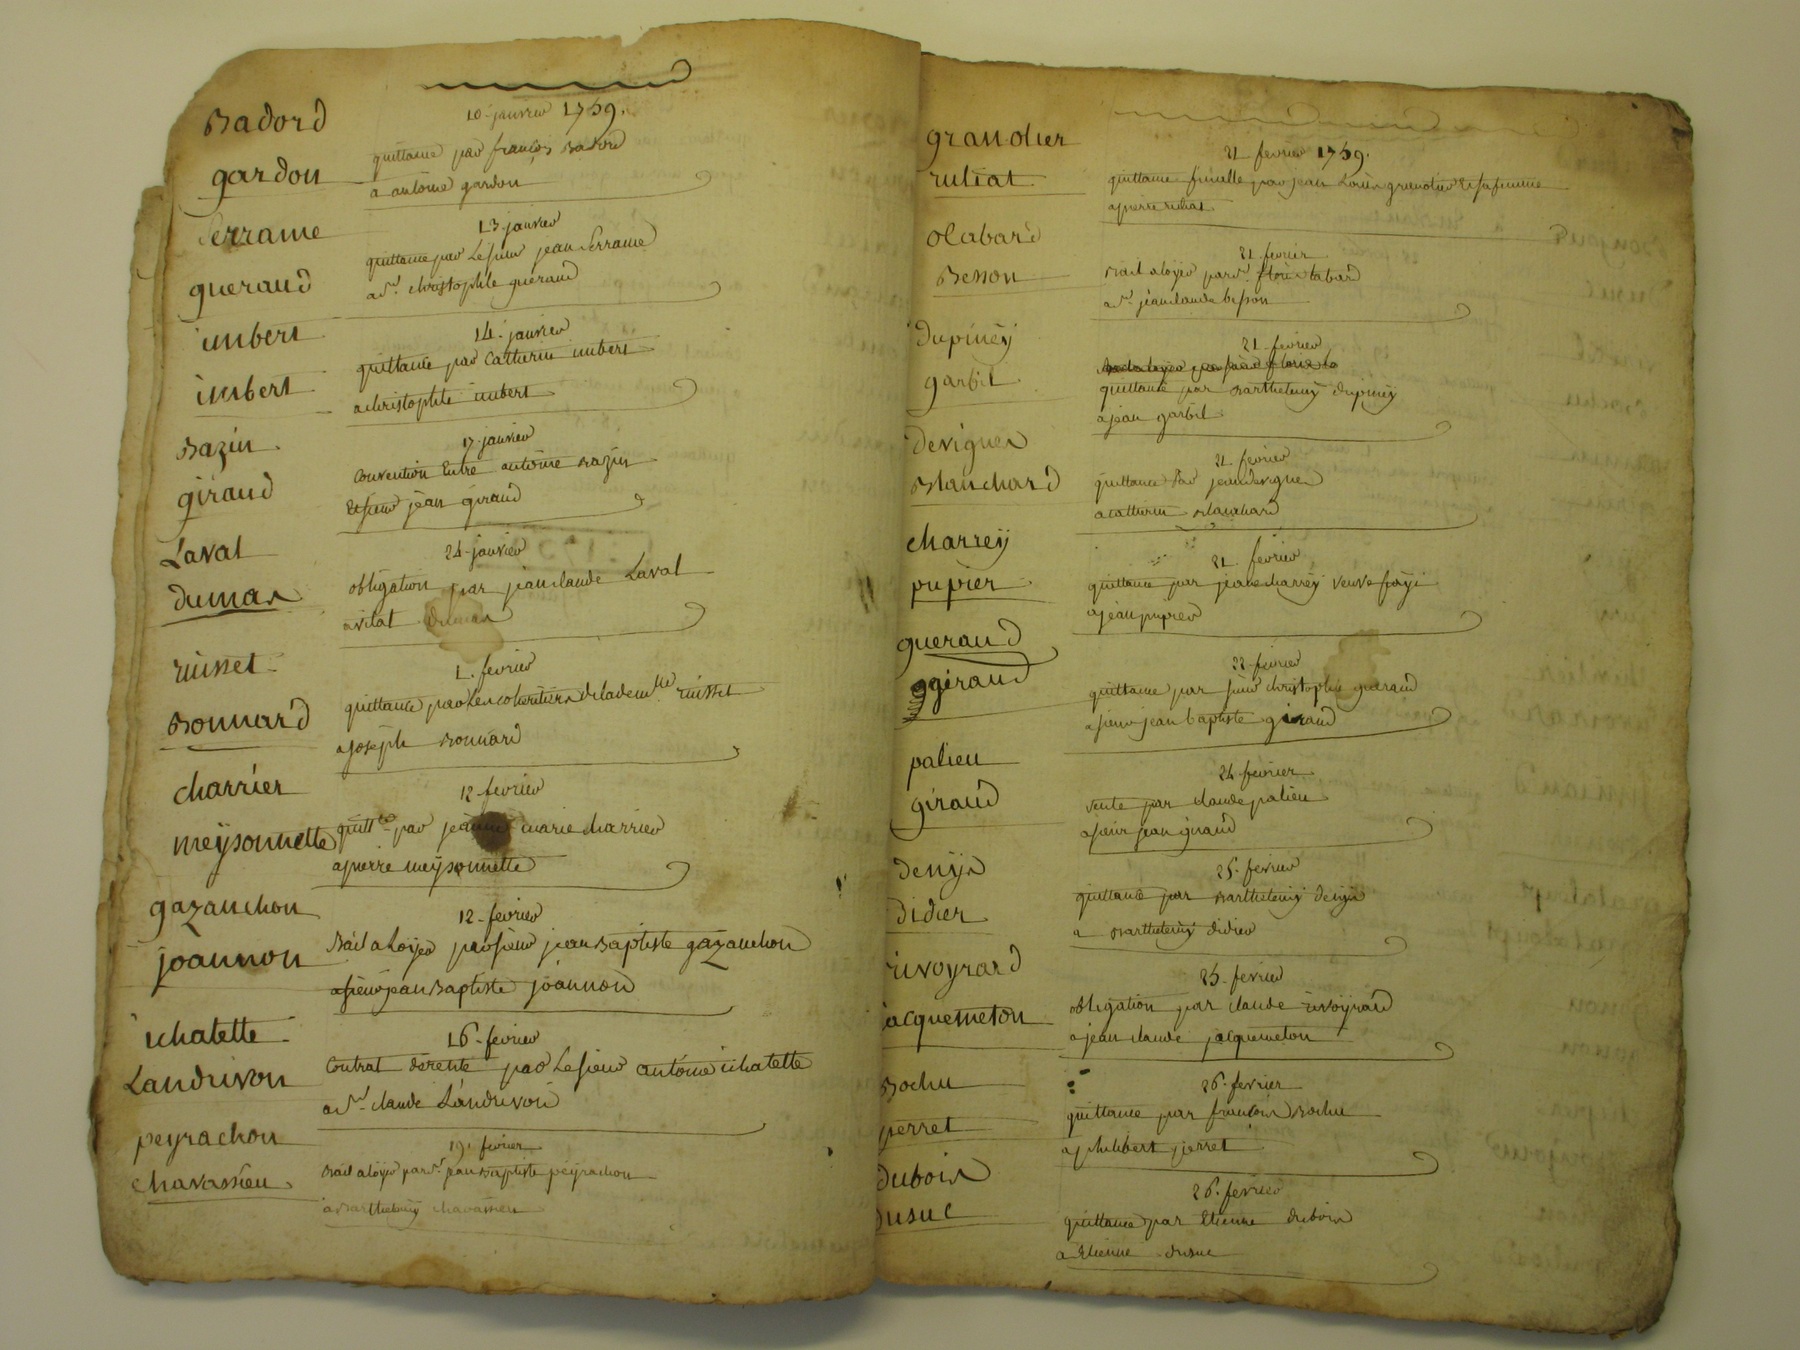 10 janvier 1759.
Badord
quittance par françois Badord
gardon
a antoine gardon
13 janvier
Serrame
quittance par Le sieur jean Serrame
gueraud
a sr. christophle gueraud
14 janvier
imbert
quittance par Catterin imbert
imbert
a christophle imbert
17 janvier
Bazin
Convention Entre antoine Bazin
giraud
Et sieur jean giraud
24 janvier
Laval
obligation par jean claude Laval
dumas
a vital dumas
1. fevrier
russet
quittance par Les coheritiers de lademlle russet
Bonnard
a joseph Bonnard
12 fevrier
charrier
quittce par jeanne marie charrier
meysonnette
a pierre meysonnette
12 fevrier
gazanchon
Bail a Loyer par sieur jean Baptiste gazanchon
joannon
a sieur jean Baptiste joannon
16 fevrier
Contrat de rente par Le sieur antoine
Landrivon
a sr. claude Landrivon
19. fevrier
peyrachon
Bail a loyer par sr. jean Baptiste peyrachon
chavassieu
a Barthelemy chavassieu
21 fevrier 1759.
quittance finalle par jean Louis et sa femme
ruliat
a pierre ruliat
21 fevrier
Bail a loyer par sr tabard
Besson
a sr. jean claude besson
21 fevrier
dupiney
quittance par Barthelemy dupiney
garbil
a jean garbil
21 fevrier
devignes
quittance Par jean devignes
Blanchard
a catterin Blanchard
21 fevrier
charrey
quittance par jeane charrey veuve
pupier
a jean pupier
22 fevrier
gueraud
quittance par sieur christophle gueraud
giraud
a sieur jean baptiste giraud
24 fevrier
palieu
vente par claude palieu
giraud
a sieur jean giraud
25 fevrier
denys
quittance par Barthelemy denys
didier
a Barthelemy didier
25 fevrier
rivoyrard
obligation par claude rivoyrard
jacquemeton
a jean claude jacquemeton
26 fevrier
Bochu
quittance par françois Bochu
perret
a philibert perret
26 fevrier
dubois
quittance par Etienne dubois
dusuc
a Etienne dusuc